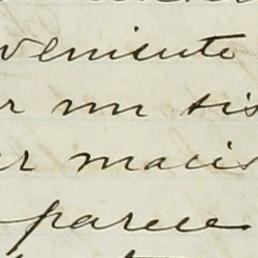 veniente
r un sis
er macis
parece